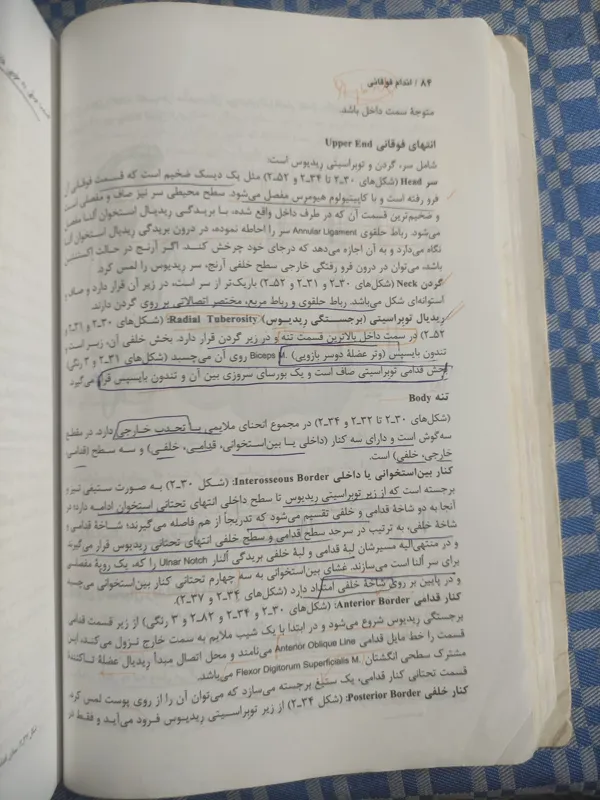 ۸۴ / اندام فوقانی
متوجهٔ سمت داخل باشد.
انتهای فوقانی Upper End
شامل سر، گردن و توبراسیتی ردیوس است:
سر Head (شکل‌های ۳۰-۲ تا ۳۴-۲ و ۵۲-۲) مثل یک دیسک ضخیم است که قسمت فوقانی آن
فرو رفته است و با کاپیتیولوم هیومرس مفصل می‌شود. سطح محیطی سر نیز صاف و مفصلی است
و ضخیم‌ترین قسمت آن که در طرف داخل واقع شده، با بریدگی ردیال استخوان آلنا مفصل
می‌شود. رباط حلقوی Annular Ligament سر را احاطه نموده، در درون بریدگی ردیال استخوان آلنا
نگاه می‌دارد و به آن اجازه می‌دهد که درجای خود چرخش کند. اگر آرنج در حالت اکستنشن
باشد، می‌توان در درون فرو رفتگی خارجی سطح خلفی آرنج، سر ردیوس را لمس کرد.
گردن Neck (شکل‌های ۳۰-۲ و ۳۱-۲ و ۵۲-۲) باریک‌تر از سر است، در زیر آن قرار دارد و صاف و
استوانه‌ای شکل می‌باشد. رباط حلقوی و رباط مربع، مختصر اتصالاتی بر روی گردن دارند.
ردیال توبراسیتی (برجستگی ردیوس) Radial Tuberosity: (شکل‌های ۳۰-۲ و ۳۱-۲ و
۵۲-۲) در سمت داخل بالاترین قسمت تنه و در زیر گردن قرار دارد. بخش خلفی آن، زبر است و
تندون بایسپس (وتر عضلهٔ دوسر بازویی) Biceps M. روی آن می‌چسبد (شکل‌های ۳۱-۲ و ۳ رنگی)
بخش قدامی توبراسیتی صاف است و یک بورسای سروزی بین آن و تندون بایسپس قرار می‌گیرد
تنه Body
(شکل‌های ۳۰-۲ تا ۳۲-۲ و ۳۴-۲) در مجموع انحنای ملایمی با تحدب خارجی دارد. در مقطع
سه‌گوش است و دارای سه کنار (داخلی یا بین‌استخوانی، قدامی، خلفی) و سه سطح (قدامی،
خارجی، خلفی) است.
کنار بین‌استخوانی یا داخلی Interosseous Border: (شکل ۳۰-۲) به صورت ستیغی تیز و
برجسته است که از زیر توبراسیتی ردیوس تا سطح داخلی انتهای تحتانی استخوان ادامه دارد؛ در
آنجا به دو شاخهٔ قدامی و خلفی تقسیم می‌شود که تدریجاً از هم فاصله می‌گیرند؛ شاخهٔ قدامی و
شاخهٔ خلفی، به ترتیب در سرحد سطح قدامی و سطح خلفی انتهای تحتانی ردیوس قرار می‌گیرند
و در منتهی‌الیه مسیرشان لبهٔ قدامی و لبهٔ خلفی بریدگی آلنار Ulnar Notch را که، یک رویهٔ مفصلی
برای سر آلنا است می‌سازند. غشای بین‌استخوانی به سه چهارم تحتانی کنار بین‌استخوانی می‌چسبد
و در پایین بر روی شاخهٔ خلفی امتداد دارد (شکل‌های ۳۴-۲ و ۳۷-۲).
کنار قدامی Anterior Border: (شکل‌های ۳۰-۲ و ۳۴-۲ و ۸۲-۲ و ۳ رنگی) از زیر قسمت قدامی
برجستگی ردیوس شروع می‌شود و در ابتدا با یک شیب ملایم به سمت خارج نزول می‌کند، این
قسمت را خط مایل قدامی Anterior Oblique Line می‌نامند و محل اتصال مبدأ ردیال عضلهٔ تاکنندهٔ
مشترک سطحی انگشتان Flexor Digitorum Superficialis M. می‌باشد.
قسمت تحتانی کنار قدامی، یک ستیغ برجسته می‌سازد که می‌توان آن را از روی پوست لمس کرد.
کنار خلفی Posterior Border: (شکل ۳۴-۲) از زیر توبراسیتی ردیوس فرود می‌آید و فقط در